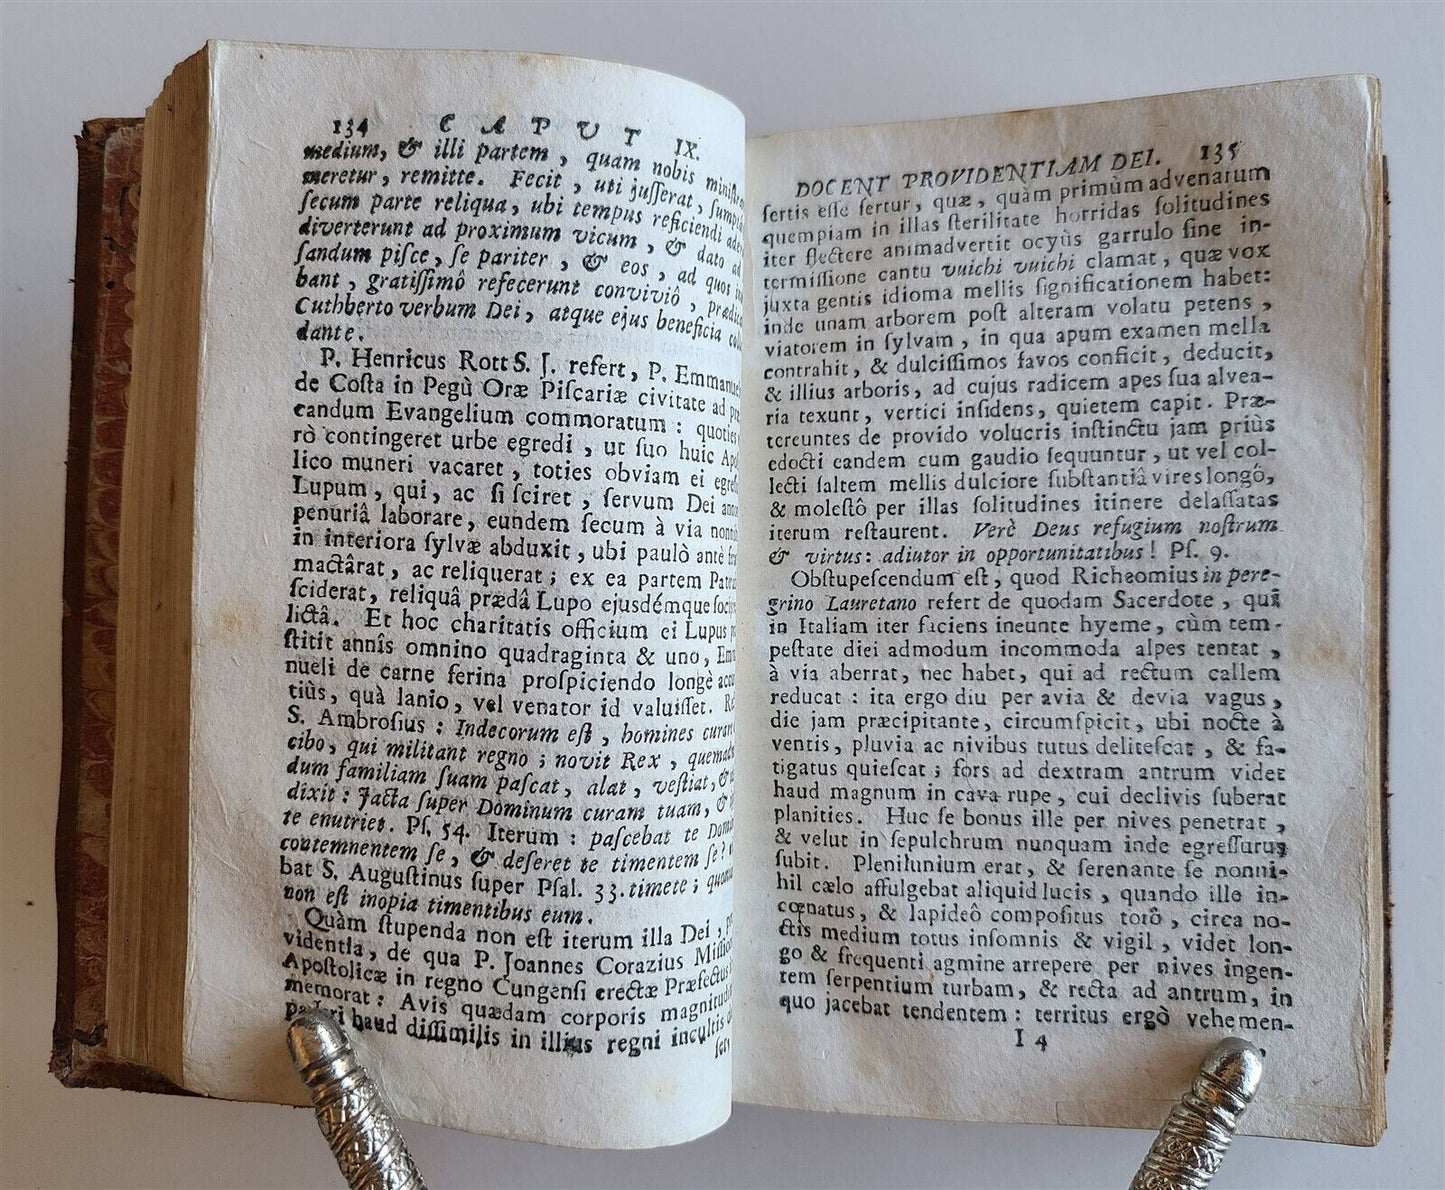 134 CAPUT IX.
medium, & illi partem, quam nobis
meretur, remitte. Fecit, uti juſſerat,
ſecum parte reliqua, ubi tempus reficiendi
diverterunt ad proximum vicum, & dato ad
ſandum piſce, ſe pariter, & eos, ad quos
bant, gratiſſimô refecerunt conviviô,
Cuthberto verbum Dei, atque ejus beneficia
dante.
P. Henricus Rott S. J. refert, P.
de Coſta in Pegù Oræ Piſcariæ civitate ad
candum Evangelium commoratum: quoties
rò contingeret urbe egredi, ut ſuo huic
lico muneri vacaret, toties obviam ei
Lupum, qui, ac ſi ſciret, ſervum Dei
penuriâ laborare, eundem ſecum à via
in interiora ſylvæ abduxit, ubi paulò antè
mactârat, ac reliquerat; ex ea partem
ſciderat, reliquâ prædâ Lupo ejusdémque
lictâ. Et hoc charitatis officium ei Lupus
ſtitit annîs omnino quadraginta & uno,
nueli de carne ferina proſpiciendo longè
tiùs, quà lanio, vel venator id valuiſſet.
S. Ambroſius: Indecorum eſt, homines
cibo, qui militant regno; novit Rex,
dum familiam ſuam paſcat, alat, veſtiat, &
dixit: Jacta ſuper Dominum curam tuam, &
te enutriet. Pſ. 54. Iterum: paſcebat te
contemnentem ſe, & deſeret te timentem ſe?
bat S. Auguſtinus ſuper Pſal. 33. timete;
non eſt inopia timentibus eum.
Quàm ſtupenda non eſt iterum illa Dei,
videntia, de qua P. Joannes Corazius
Apoſtolicæ in regno Cungenſi erectæ
memorat: Avis quædam corporis
haud diſſimilis in illius regni
135 DOCENT PROVIDENTIAM DEI.
ſertis eſſe fertur, quæ, quàm primùm advenarum
quempiam in illas ſterilitate horridas ſolitudines
iter flectere animadvertit ocyùs garrulo ſine in-
termiſſione cantu vuichi vuichi clamat, quæ vox
juxta gentis idioma mellis ſignificationem habet:
inde unam arborem poſt alteram volatu petens,
viatorem in ſylvam, in qua apum examen mella
contrahit, & dulciſſimos favos conficit, deducit,
& illius arboris, ad cujus radicem apes ſua alvea-
ria texunt, vertici inſidens, quietem capit. Præ-
tereuntes de provido volucris inſtinctu jam priùs
edocti eandem cum gaudio ſequuntur, ut vel col-
lecti ſaltem mellis dulciore ſubſtantiâ vires longô,
& moleſtô per illas ſolitudines itinere delaſſatas
iterum reſtaurent. Verè Deus refugium noſtrum
& virtus: adiutor in opportunitatibus! Pſ. 9.
Obſtupeſcendum eſt, quod Richeomius in pere-
grino Lauretano refert de quodam Sacerdote, qui
in Italiam iter faciens ineunte hyeme, cùm tem-
peſtate diei admodum incommoda alpes tentat,
à via aberrat, nec habet, qui ad rectum callem
reducat: ita ergo diu per avia & devia vagus,
die jam præcipitante, circumſpicit, ubi nocte à
ventis, pluvia ac nivibus tutus deliteſcat, & fa-
tigatus quieſcat; fors ad dextram antrum videt
haud magnum in cava rupe, cui declivis ſuberat
planities. Huc ſe bonus ille per nives penetrat,
& velut in ſepulchrum nunquam inde egreſſurus
ſubit. Plenilunium erat, & ſerenante ſe nonni-
hil cælo affulgebat aliquid lucis, quando ille in-
cœnatus, & lapideô compoſitus torô, circa no-
ctis medium totus inſomnis & vigil, videt lon-
go & frequenti agmine arrepere per nives ingen-
tem ſerpentium turbam, & recta ad antrum, in
quo jacebat tendentem: territus ergò vehemen-
I 4